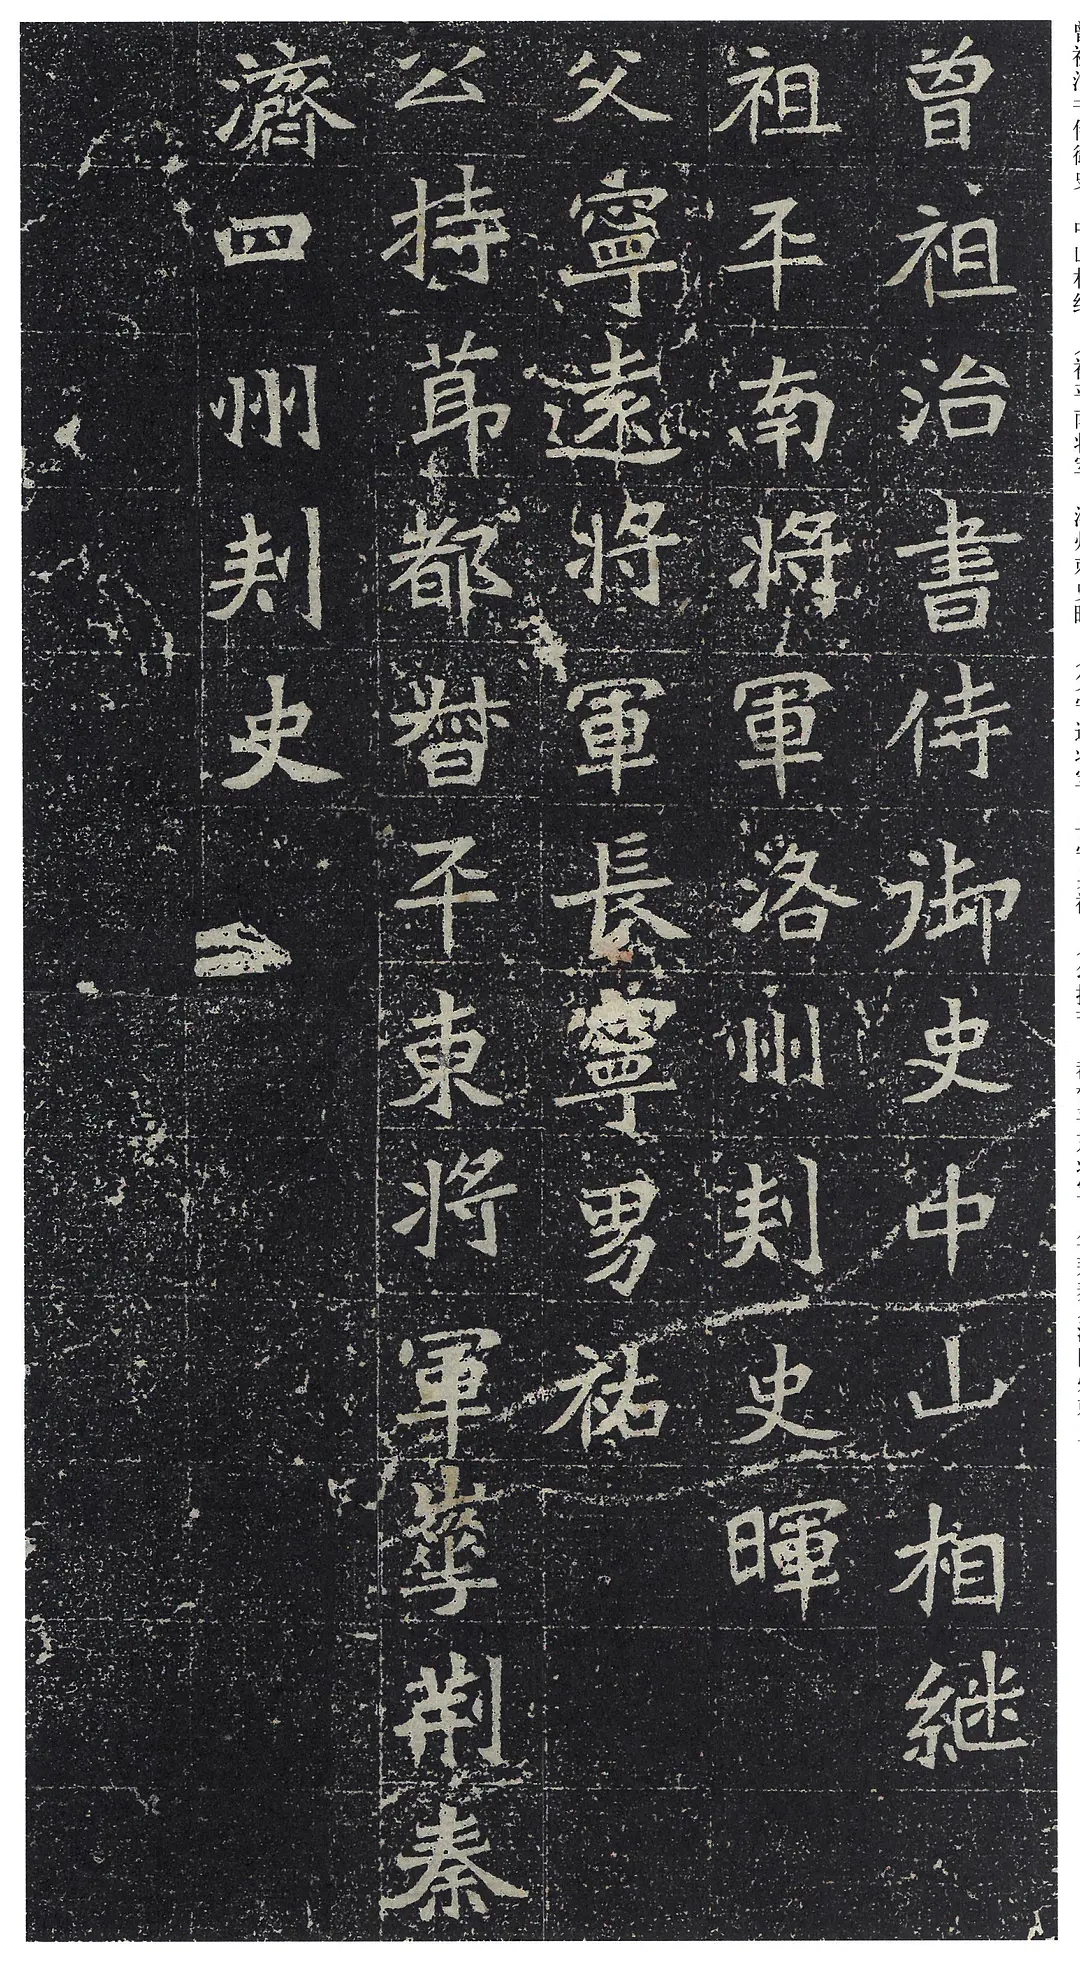 曾祖治書侍御史中山相継
祖平南將軍洛州刾史暉
父寧遠將軍長寧男祐
公持莭都督平東將軍華荆秦
濟四州刾史